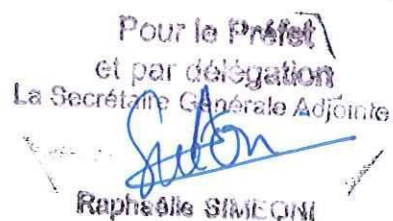 Pour le Préfet
et par délégation
La Secrétaire Générale Adjointe
Raphaëlle SIMEONI